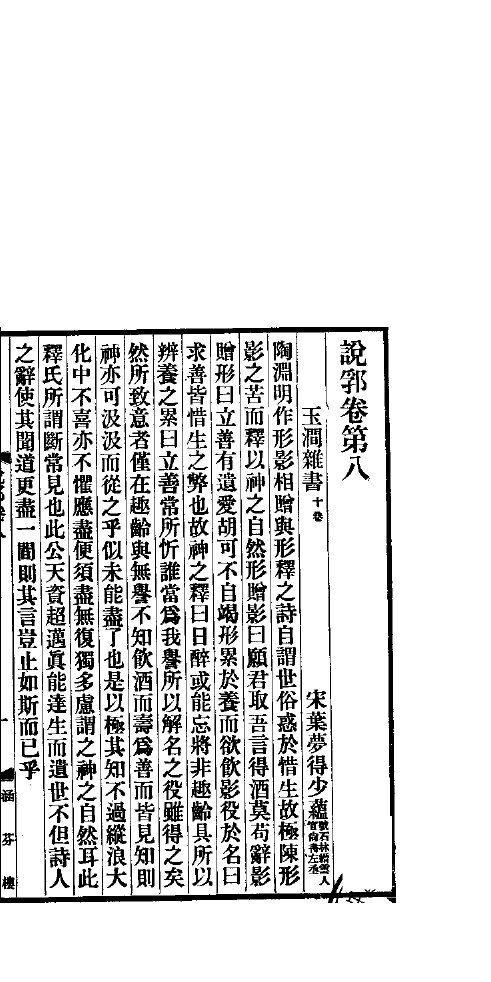 說郛卷第八
玉澗雜書十卷 宋葉夢得少蘊號石林 人官尚書左丞
陶淵明作形影相贈與形釋之詩自謂世俗惑於惜生故極陳形
影之苦而釋以神之自然形贈影曰願君取吾言得酒莫苟辭影
贈形曰立善有遺愛胡可不自竭形累於養而欲飲影役於名曰
求善皆惜生之弊也故神之釋曰日醉或能忘將非趣齡具所以
辨養之累曰立善常所忻誰當爲我譽所以解名之役雖得之矣
然所致意者僅在趣齡與無譽不知飲酒而壽爲善而皆見知則
神亦可汲汲而從之乎似未能盡了也是以極其知不過縱浪大
化中不喜亦不懼應盡便須盡無復獨多慮謂之神之自然耳此
釋氏所謂斷常見也此公天資超邁眞能達生而遺世不但詩人
之辭使其聞道更盡一間則其言豈止如斯而已乎
一
涵芬樓